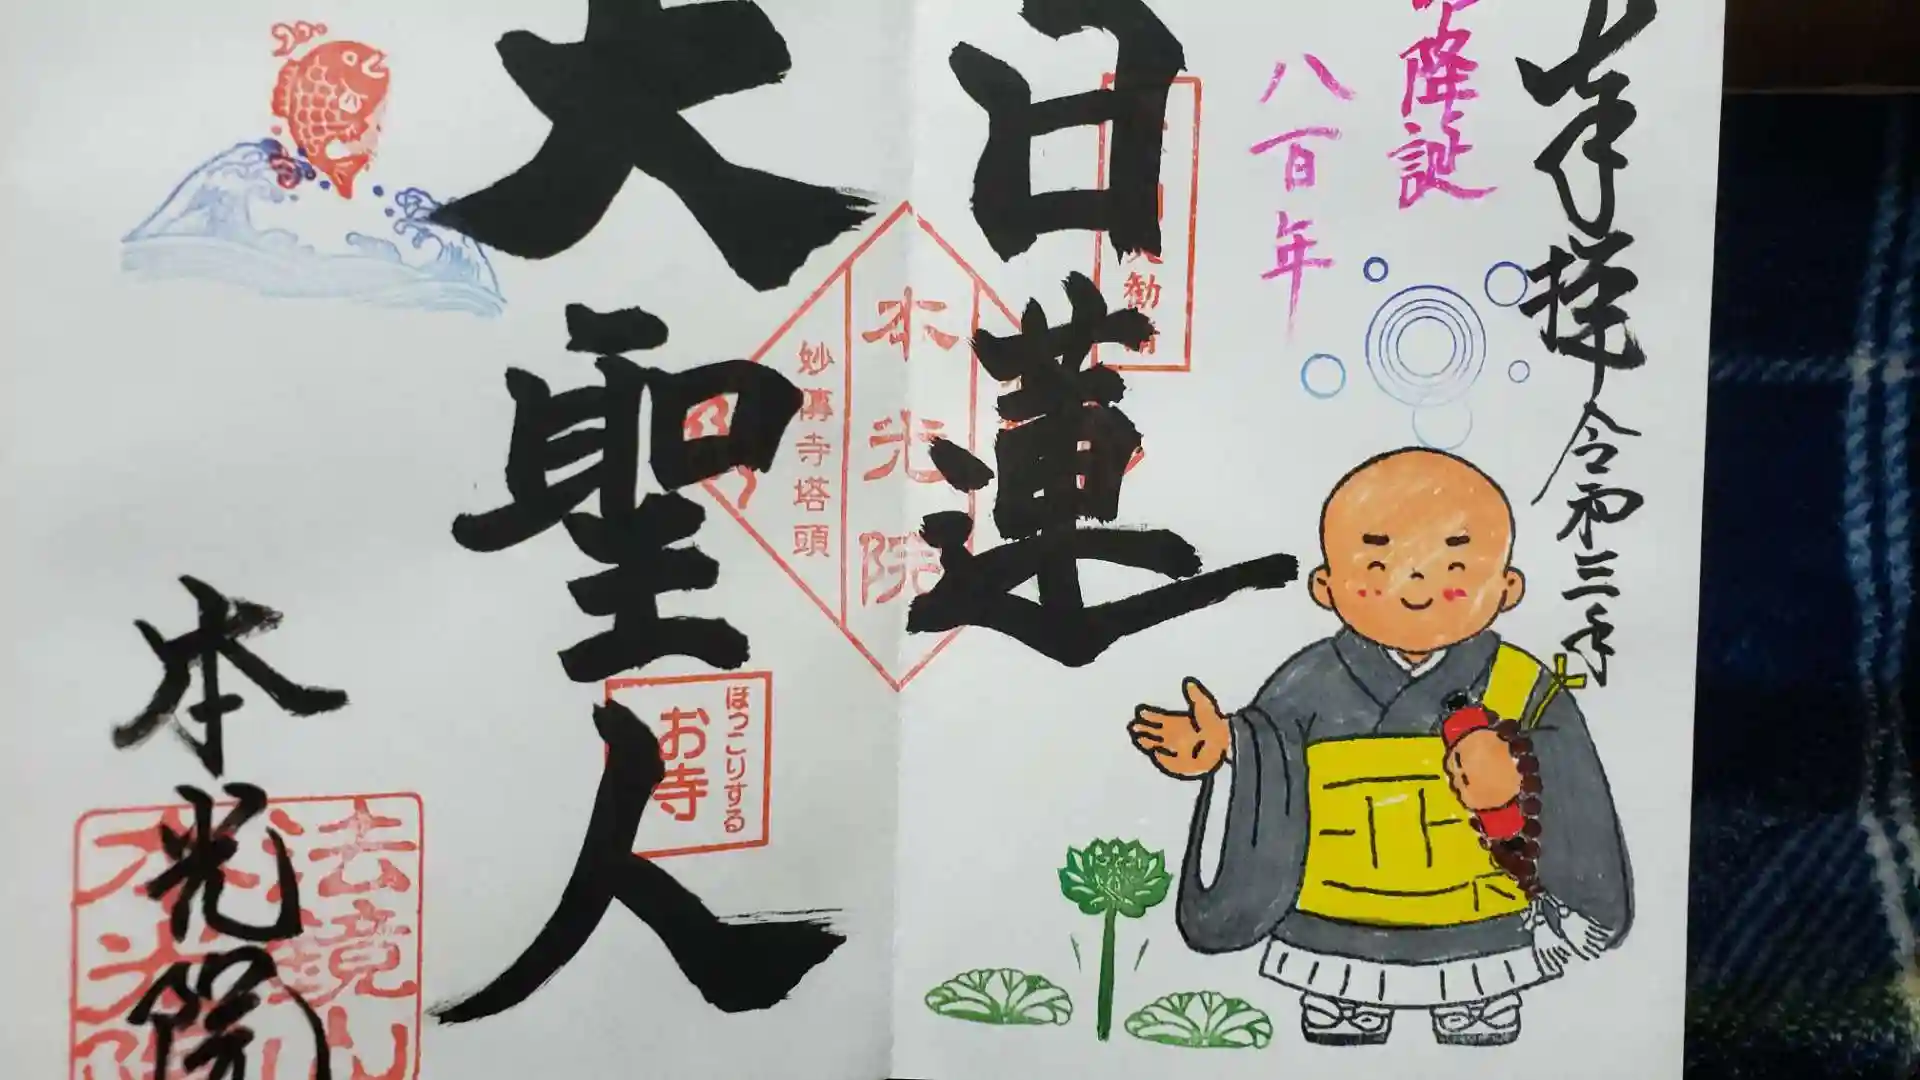 奉拝 令和三年
降誕
八百年
日蓮
大聖人
勧請
本光院
妙傳寺塔頭
ほっこりする
お寺
本光院
法鏡山
本光院